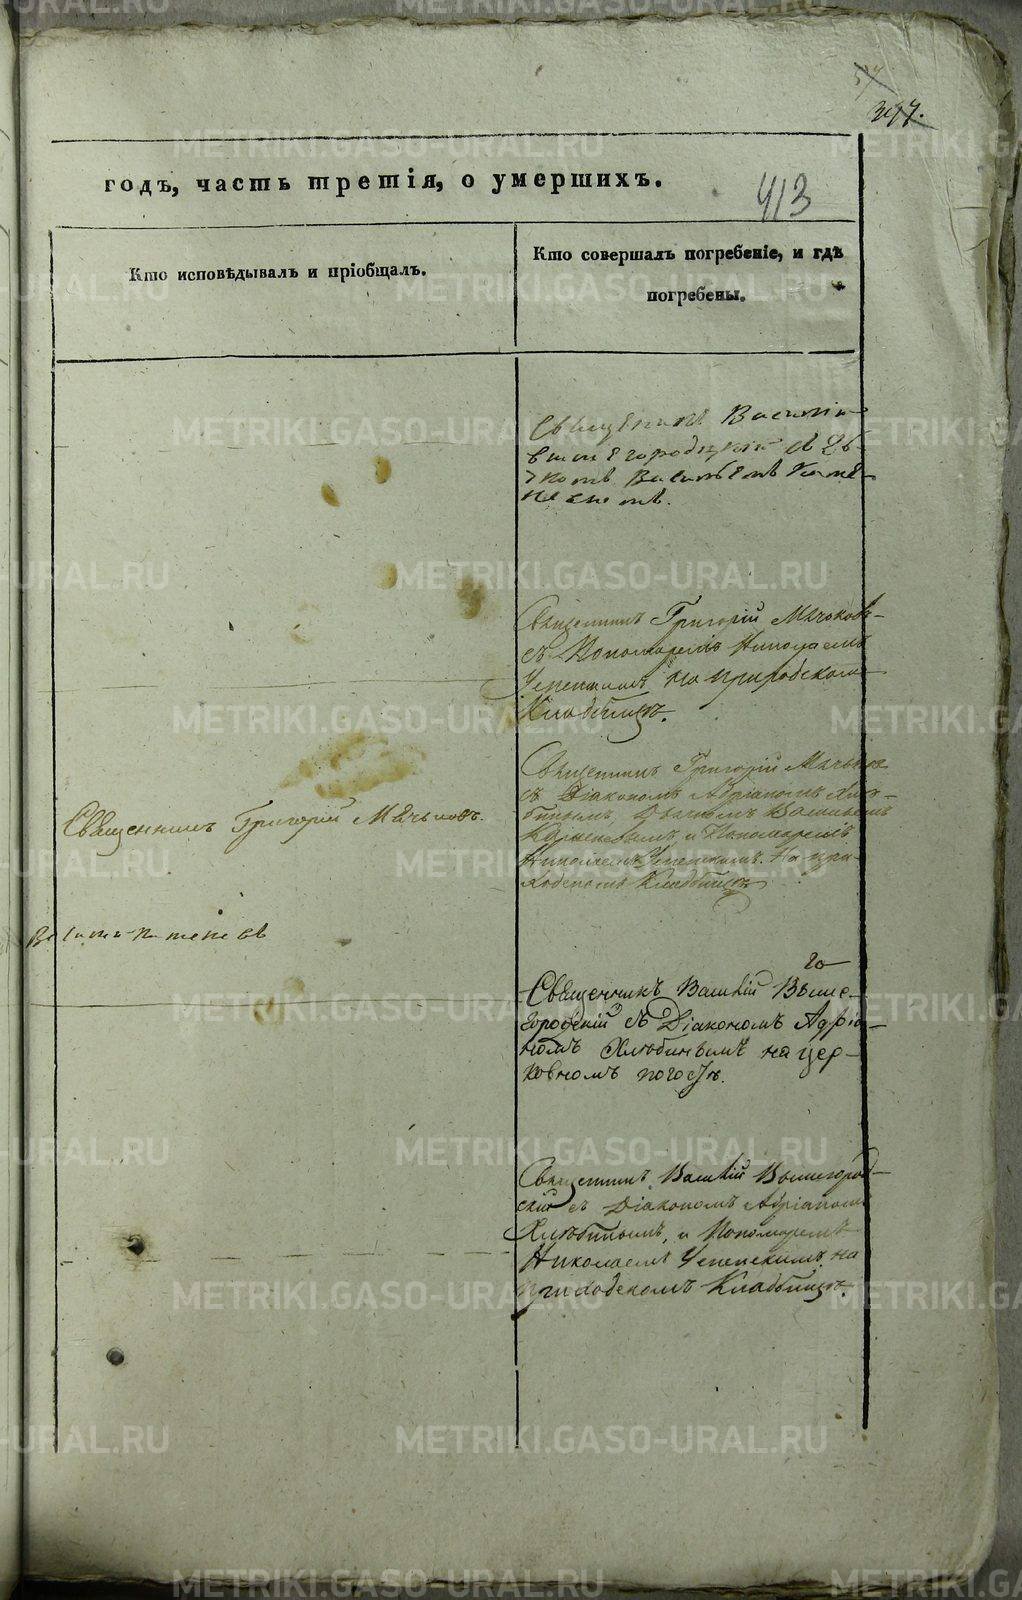 397.
годъ, часть третія, о умершихъ.
413
Кто исповѣдывалъ и пріобщалъ.
Кто совершалъ погребеніе, и гдѣ
погребены.
Священникъ Василій
съ
Василіемъ
Священникъ Григорій Мячьковъ
съ Пономаремъ Николаемъ
Успенскимъ на приходскомъ
Кладбищѣ.
Священникъ Григорій Мячьков
съ Діакономъ Адріаномъ Хлю-
бинымъ, Дьячкомъ Васильемъ
и Пономаремъ
Николаемъ Успенскимъ. На при-
ходскомъ Кладбищѣ
Священникъ Григорій Мячьковъ.
го
Священникъ Василій Выше-
городскій съ Діакономъ Адріа-
номъ Хлюбинымъ на цер-
ковномъ погостѣ.
Священникъ Василій Вышегород-
скій съ Діакономъ Адріаномъ
Хлюбинымъ, и Пономаремъ
Николаемъ Успенскимъ, на
приходскомъ Кладбищѣ.
METRIKI.GASO-URAL.RU